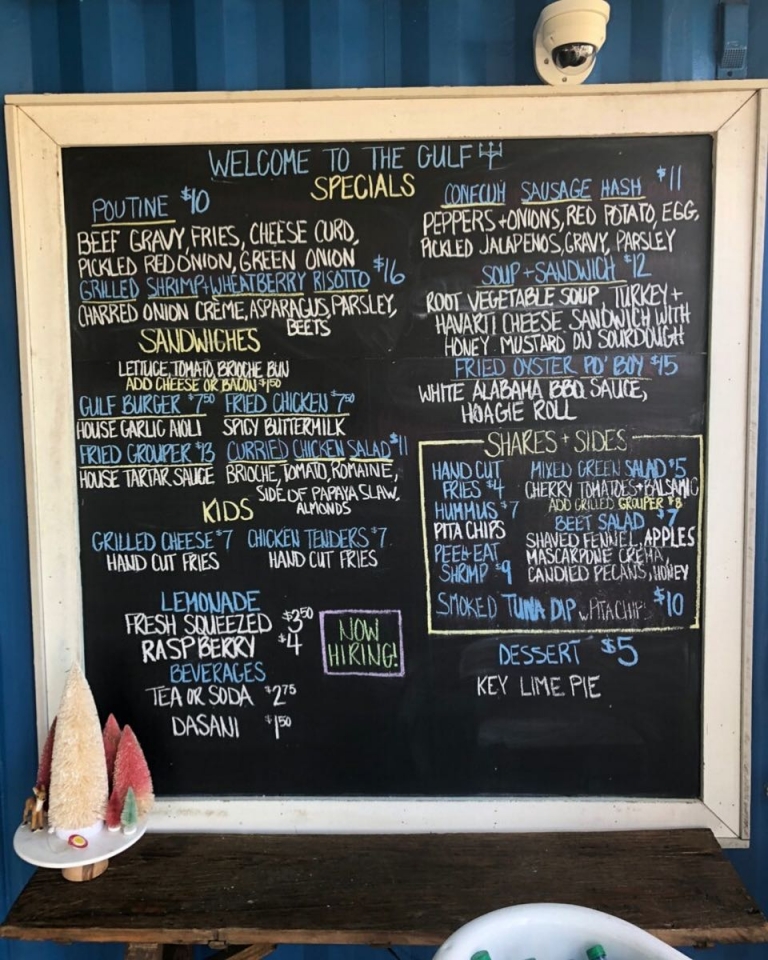 WELCOME TO THE GULF
SPECIALS
POUTINE $10
BEEF GRAVY, FRIES, CHEESE CURD,
PICKLED RED ONION, GREEN ONION
GRILLED SHRIMP+WHEATBERRY RISOTTO $16
CHARRED ONION CRÈME, ASPARAGUS, PARSLEY,
BEETS
SANDWICHES
LETTUCE, TOMATO, BRIOCHE BUN
ADD CHEESE OR BACON $1.50
GULF BURGER $7.50
HOUSE GARLIC AIOLI
FRIED CHICKEN $7.50
SPICY BUTTERMILK
FRIED GROUPER $13
HOUSE TARTAR SAUCE
CURRIED CHICKEN SALAD $11
BRIOCHE, TOMATO, ROMAINE,
SIDE OF PAPAYA SLAW,
ALMONDS
KIDS
GRILLED CHEESE $7
HAND CUT FRIES
CHICKEN TENDERS $7
HAND CUT FRIES
LEMONADE
FRESH SQUEEZED $3.50
RASPBERRY $4
BEVERAGES
TEA OR SODA $2.75
DASANI $1.50
NOW
HIRING!
CONECUH SAUSAGE HASH $11
PEPPERS+ONIONS, RED POTATO, EGG,
PICKLED JALAPENOS, GRAVY, PARSLEY
SOUP+SANDWICH $12
ROOT VEGETABLE SOUP, TURKEY+
HAVARTI CHEESE SANDWICH WITH
HONEY MUSTARD ON SOURDOUGH
FRIED OYSTER PO' BOY $15
WHITE ALABAMA BBQ SAUCE,
HOAGIE ROLL
SHARES + SIDES
HAND CUT
FRIES $4
HUMMUS $7
PITA CHIPS
PEEL+EAT
SHRIMP $9
MIXED GREEN SALAD $5
CHERRY TOMATOES+BALSAMIC
ADD GRILLED GROUPER $8
BEET SALAD $7
SHAVED FENNEL, APPLES
MASCARPONE CREMA,
CANDIED PECANS, HONEY
SMOKED TUNA DIP w/PITA CHIPS $10
DESSERT $5
KEY LIME PIE